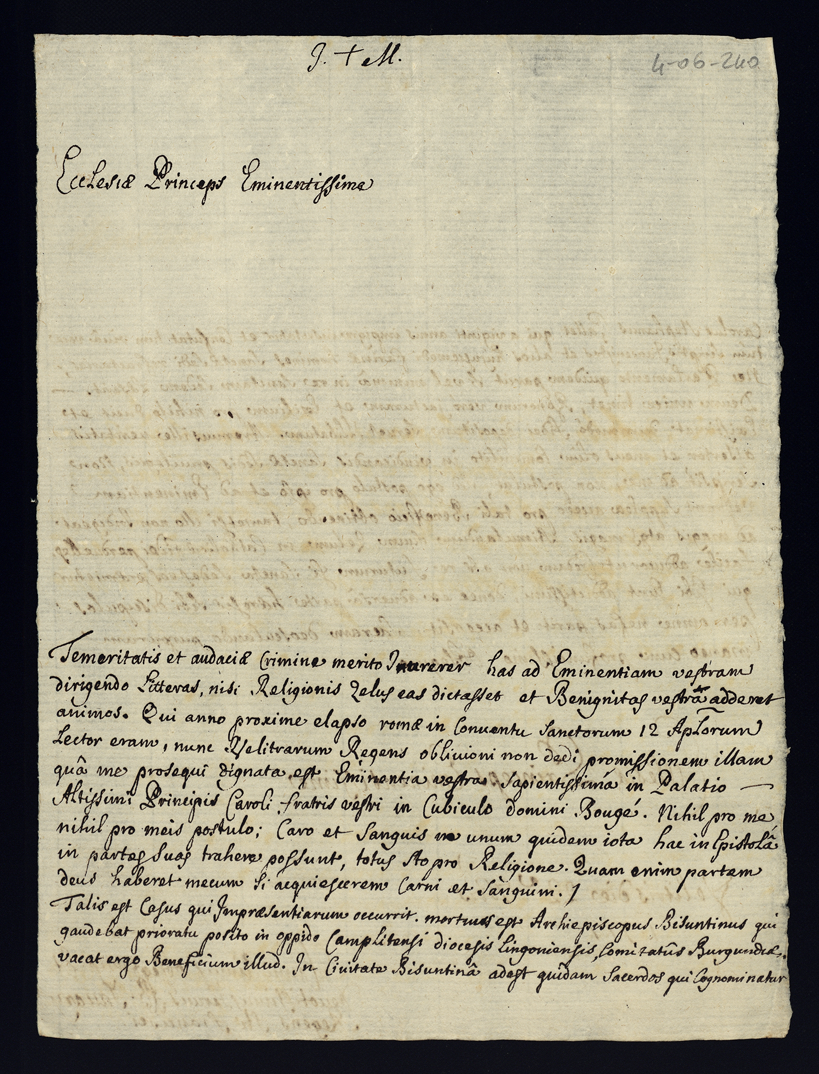 J. + M.
4-06-240
Ecclesiæ Princeps Eminentissime
Temeritatis et audaciæ Crimine merito has ad Eminentiam vestram
dirigendo Litteras, nisi Religionis Zelus eas dictasset et Benignitas vestra adderet
animos. Qui anno proxime elapso romæ in Conventu Sanctorum 12 Aplorum
Lector eram, nunc Velitrarum Regens oblivioni non dedi promissionem illam
quâ me prosequi dignata est Eminentia vestra Sapientissima in Palatio —
Altissimi Principis Caroli fratris vestri in Cubiculo domini Bougé. Nihil pro me
nihil pro meis postulo; Caro et Sanguis ne unum quidem iota hac in Epistolâ
in partes suas trahere possunt, totus sto pro Religione. Quam enim partem
deus haberet mecum si acquiescerem Carni et Sanguini. /
Talis est Casus qui Inpræsentiarum occurrit. mortuus est Archiepiscopus Bisuntinus qui
gaudebat prioratu posito in oppido Camplitensi diocesis Lingoniensis, Comitatûs Burgundiæ.
vacat ergo Beneficium illud. In Civitate Bisuntinâ adest quidam Sacerdos qui Cognominatur